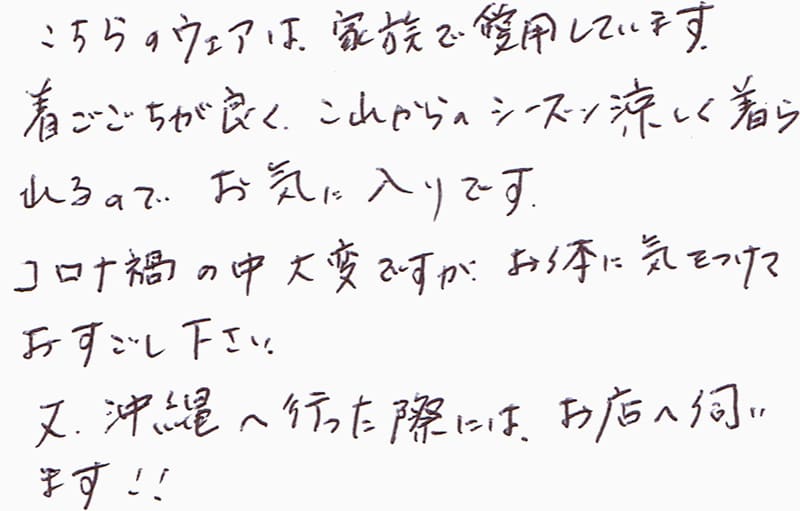 こちらのウェアは、家族で愛用しています。
着ごごちが良く、これからのシーズン涼しく着ら
れるので、お気に入りです。
コロナ禍の中大変ですが、お体に気をつけて
おすごし下さい。
又、沖縄へ行った際には、お店へ伺い
ます!!